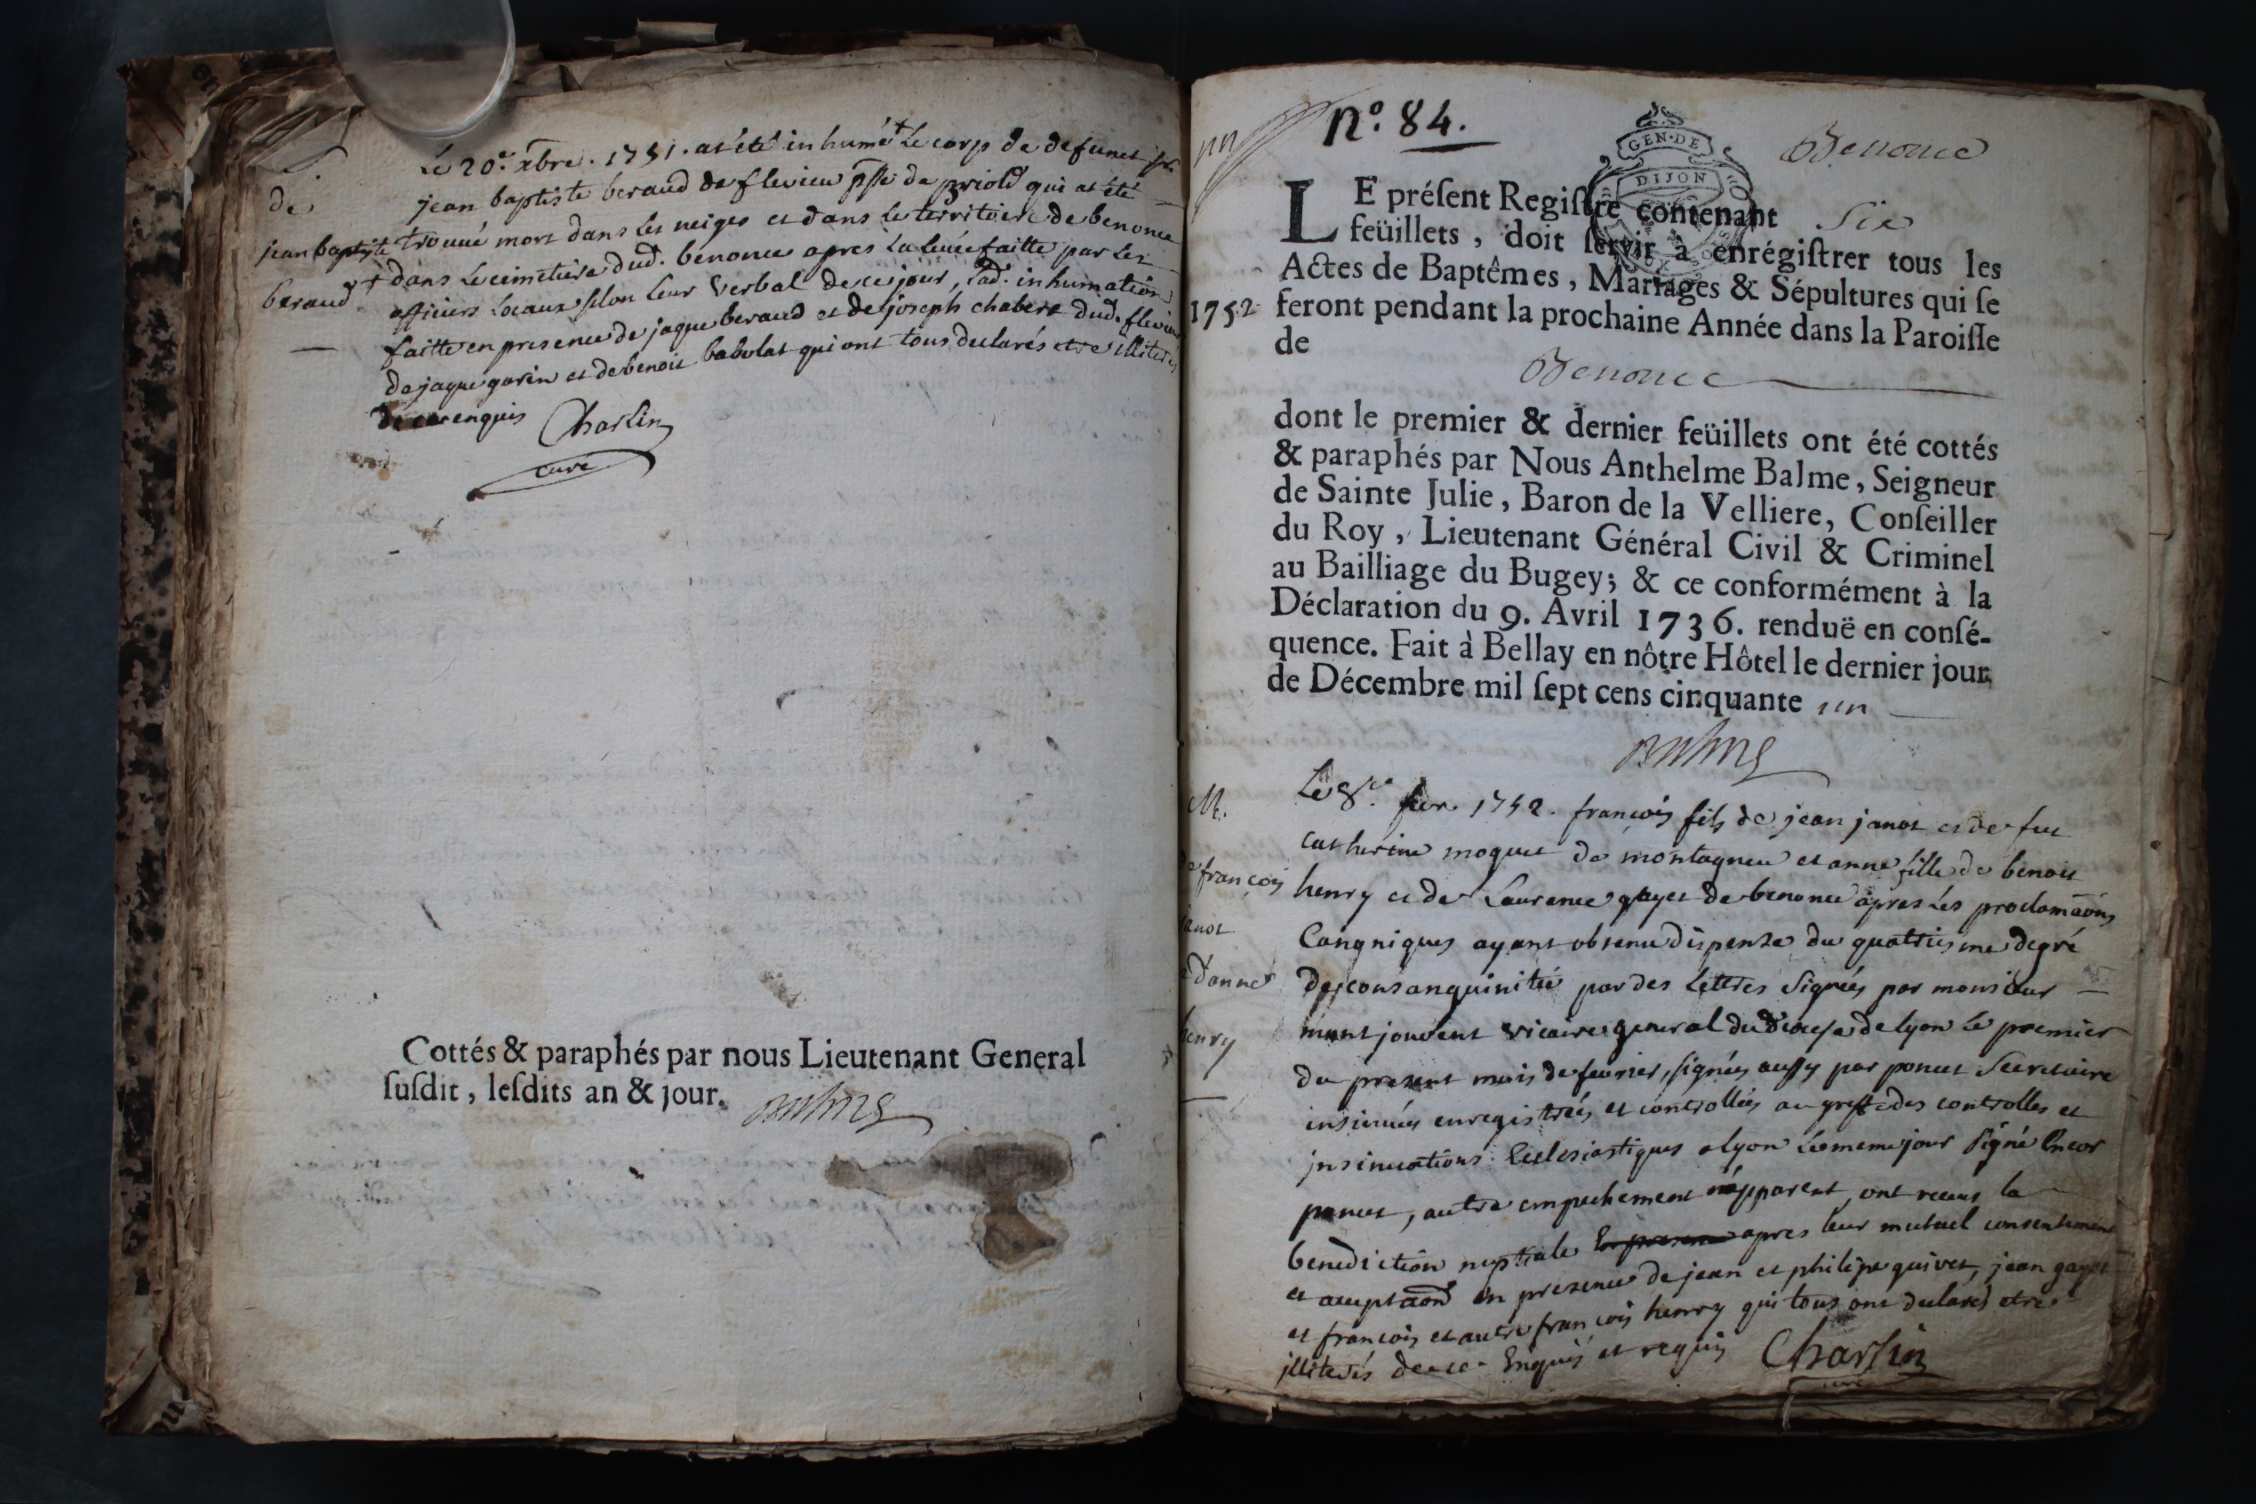 S.
de
jean baptiste
beraud
Le 20.e xbre. 1751. at été inhumé + Le corp de defunct
jean baptiste beraud de flevieu psse de priold qui at été
trouué mort dans les neiges et dans le territoire de benonce
+ dans Le cimetiere dud. benonce apres La leuée faitte par les
officiers Locaux selon leur verbal de ce jour, Lad. inhumation
faitte en presence de jaque beraud et de joseph chabert dud. flevieu
de jaque garin et de benoit babolat qui ont tous declarés etre illiterés
de ce enquis Charlin
curé
Cottés & paraphés par nous Lieutenant General
ſuſdit, leſdits an & jour.
Balme
nº. 84.
un
GEN·DE
DIJON
Benonce
LE préſent Regiſtre contenant Six
feüillets, doit ſervir à enrégiſtrer tous les
Actes de Baptêmes, Mariages & Sépultures qui ſe
1752 feront pendant la prochaine Année dans la Paroiſſe
de
Benonce
dont le premier & dernier feüillets ont été cottés
& paraphés par Nous Anthelme Balme, Seigneur
de Sainte Julie, Baron de la Velliere, Conſeiller
du Roy, Lieutenant Général Civil & Criminel
au Bailliage du Bugey; & ce conformément à la
Déclaration du 9. Avril 1736. renduë en conſé-
quence. Fait à Bellay en nôtre Hôtel le dernier jour
de Décembre mil ſept cens cinquante un
Balme
M.
de françois
janot
et d'anne
henry
Le 8.e fevr. 1752. françois fils de jean janot et de fue
catherine moquet de montagneu et anne fille de benoit
henry et de Laurence gayet de benonce apres les proclamaõns
Canoniques ayant obtenu dispense du quattriesme degré
de consanguinité par des Lettres signées par monsieur
mont jouvent vicaire general du diocese de lyon le premier
du present mois de fevrier, signées aussy par poncet Secretaire
insinuées enregistrées et controllées au greffe des controlles et
insinuations Ecclesiastiques a lyon Le meme jour signé Encor
poncet, autre empechement n'apparent, ont receus la
benediction nuptiale En presence apres leur mutuel consentement
et acceptaõn en presence de jean et philipe quivet, jean gayet
et françois et autre françois henry qui tous ont declarés etre
illiterés de ce Enquis et requis Charlin
curé